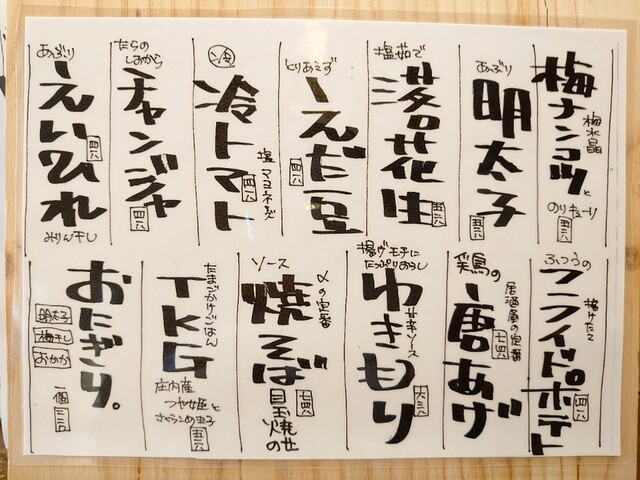 梅水晶
梅ナンコツと
のりキューリ
五三八
あぶり
明太子
五三八
塩茹で
落花生
五三八
とりあえず
えだ豆
四三八
冷
冷トマト
塩マヨネーズ
四三八
たらの
しおから
チャンジャ
四三八
あぶり
えいひれ
四三八
みりん干し
ふつうの
揚げたて
フライドポテト
居酒屋の定番
唐あげ
揚げモチに
たっぷりおろし
甘辛ソース
わきもり
六三八
〆の定番
ソース
焼そば
目玉焼のせ
たまごかけごはん
TKG
庄内産
つや姫と
五三八
おにぎり。
明太子
梅干し
おかか
一個